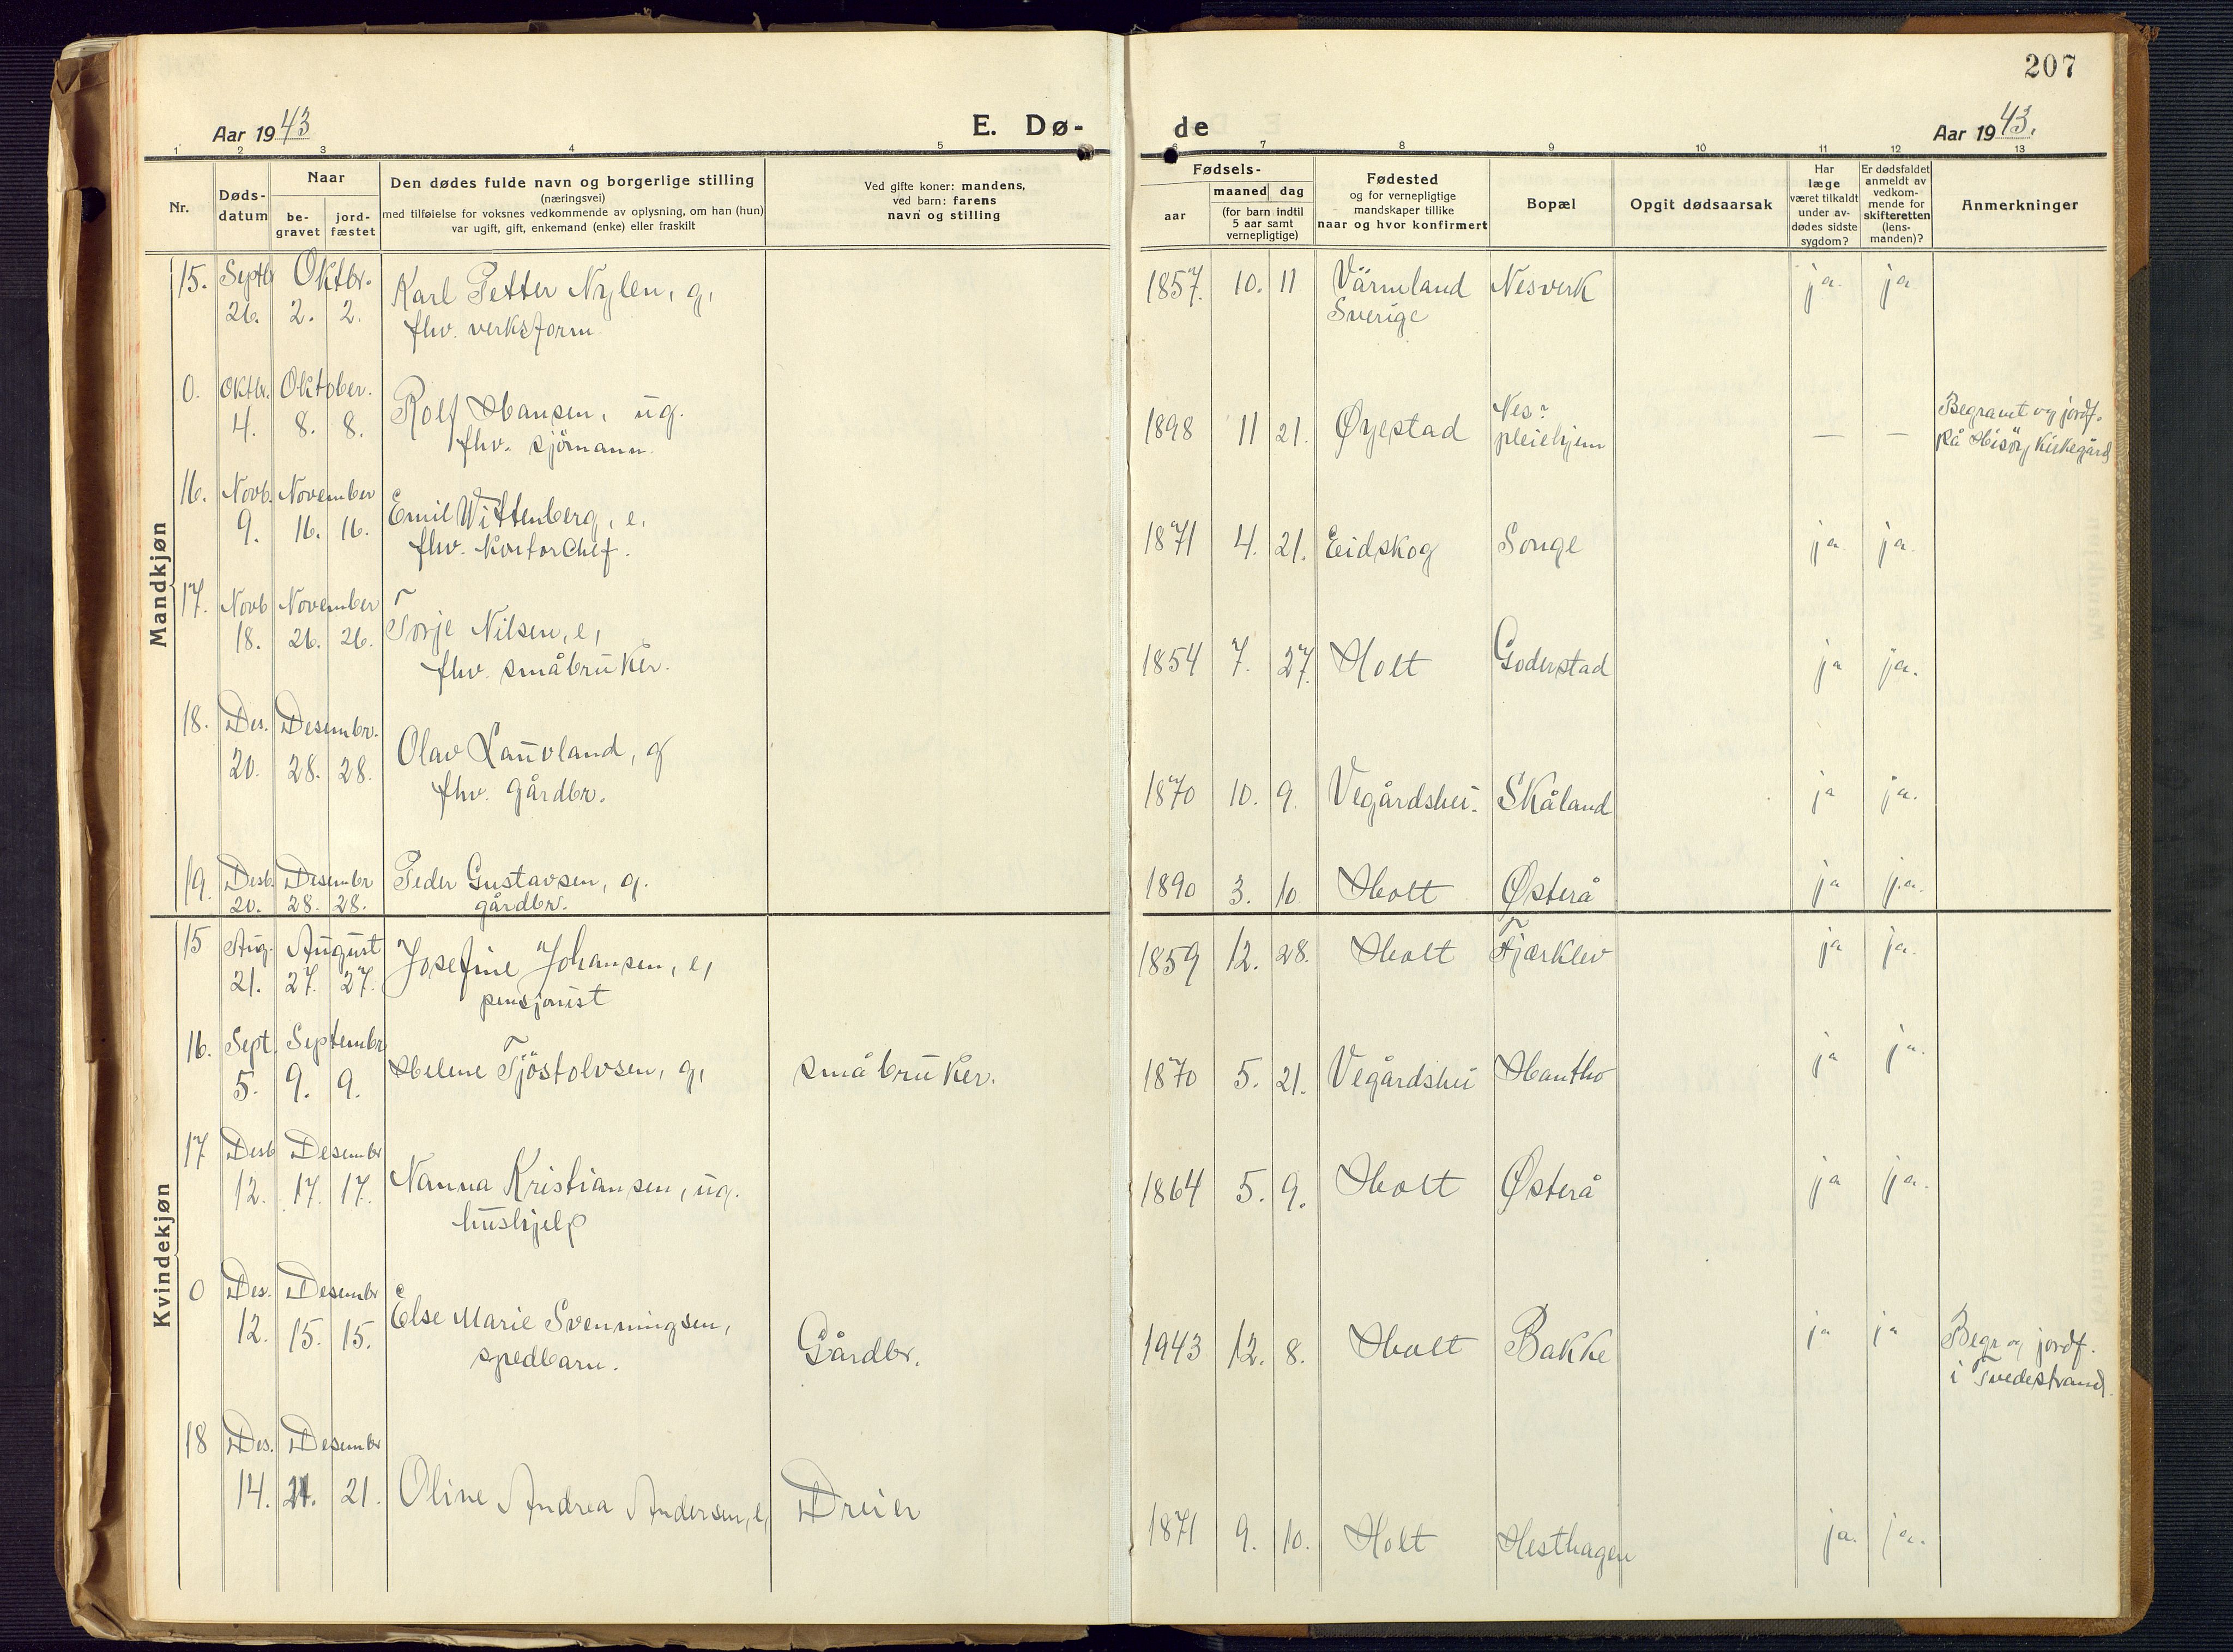 207
Aar 1943
E. Dø-
de
Aar 1943.
1 2 3 4 5 6 7 8 9 10 11 12 13
Nr.
Døds-
datum
Naar
be-
gravet
jord-
fæstet
Den dødes fulde navn og borgerlige stilling
(næringsvei)
med tilføielse for voksnes vedkommende av oplysning, om han (hun)
var ugift, gift, enkemand (enke) eller fraskilt
Ved gifte koner: mandens,
ved barn: farens
navn og stilling
Fødsels-
aar
maaned dag
(for barn indtil
5 aar samt
vernepligtige)
Fødested
og for vernepligtige
mandskaper tillike
naar og hvor konfirmert
Bopæl
Opgit dødsaarsak
Har
læge
været tilkaldt
under av-
dødes sidste
sygdom?
Er dødsfaldet
anmeldt av
vedkom-
mende for
skifteretten
(lens-
manden)?
Anmerkninger
Mandkjøn
15. Septb Oktbr.
26. 2. 2. Karl Petter Nylen, g, 1857. 10. 11 Värmland Nesverk ja. ja
fhv. verksform. Sverige
0. Oktbr. Oktober.
4. 8. 8. Rolf Hansen, ug. 1898 11 21. Øyestad Nes? — — Begravet og jordf.
fhv. sjömann. pleiehjem på Hisöy Kirkegård
16. Novb. November
9. 16. 16. Emil Wittenberg, e, 1871 4. 21. Eidskog Songe ja ja.
fhv. Kontorchef.
17. Novb November
18. 26. 26. Torje Nilsen, e, 1854 7. 27. Holt Goderstad ja ja.
fhv. småbruker.
18. Des. Desembr.
20. 28. 28. Olav Lauvland, g 1870 10. 9. Vegårdshei. Skåland ja ja.
fhv. gårdbr.
19. Desb. Desembr Peder Gustavsen, g. 1890 3. 10 Holt Østerå ja ja.
20. 28. 28. gårdbr.
Kvindekjøn
15 Aug. August
21. 27. 27. Josefine Johansen, e, 1859 12. 28. Holt Fjærklev ja ja.
pensjonist
16. Sept. Septembr
5. 9. 9. Helene Tjöstolvsen, g, småbruker. 1870 5. 21. Vegårdshei Hantho ja ja.
17 Desb Desembr
12. 17. 17. Nanna Kristiansen, ug. 1864 5. 9. Holt Østerå ja ja.
hushjelp
0 Des. Desembr
12. 15. 15. Else Marie Svenningsen, Gårdbr. 1943 12. 8. Holt Bakke ja ja Begr. og jordf.
spedbarn. i Tvedestrand.
18 Des. Desembr
14. 21. 21. Oline Andrea Andersen, e, Dreier 1871 9. 10. Holt Hesthagen ja. ja.